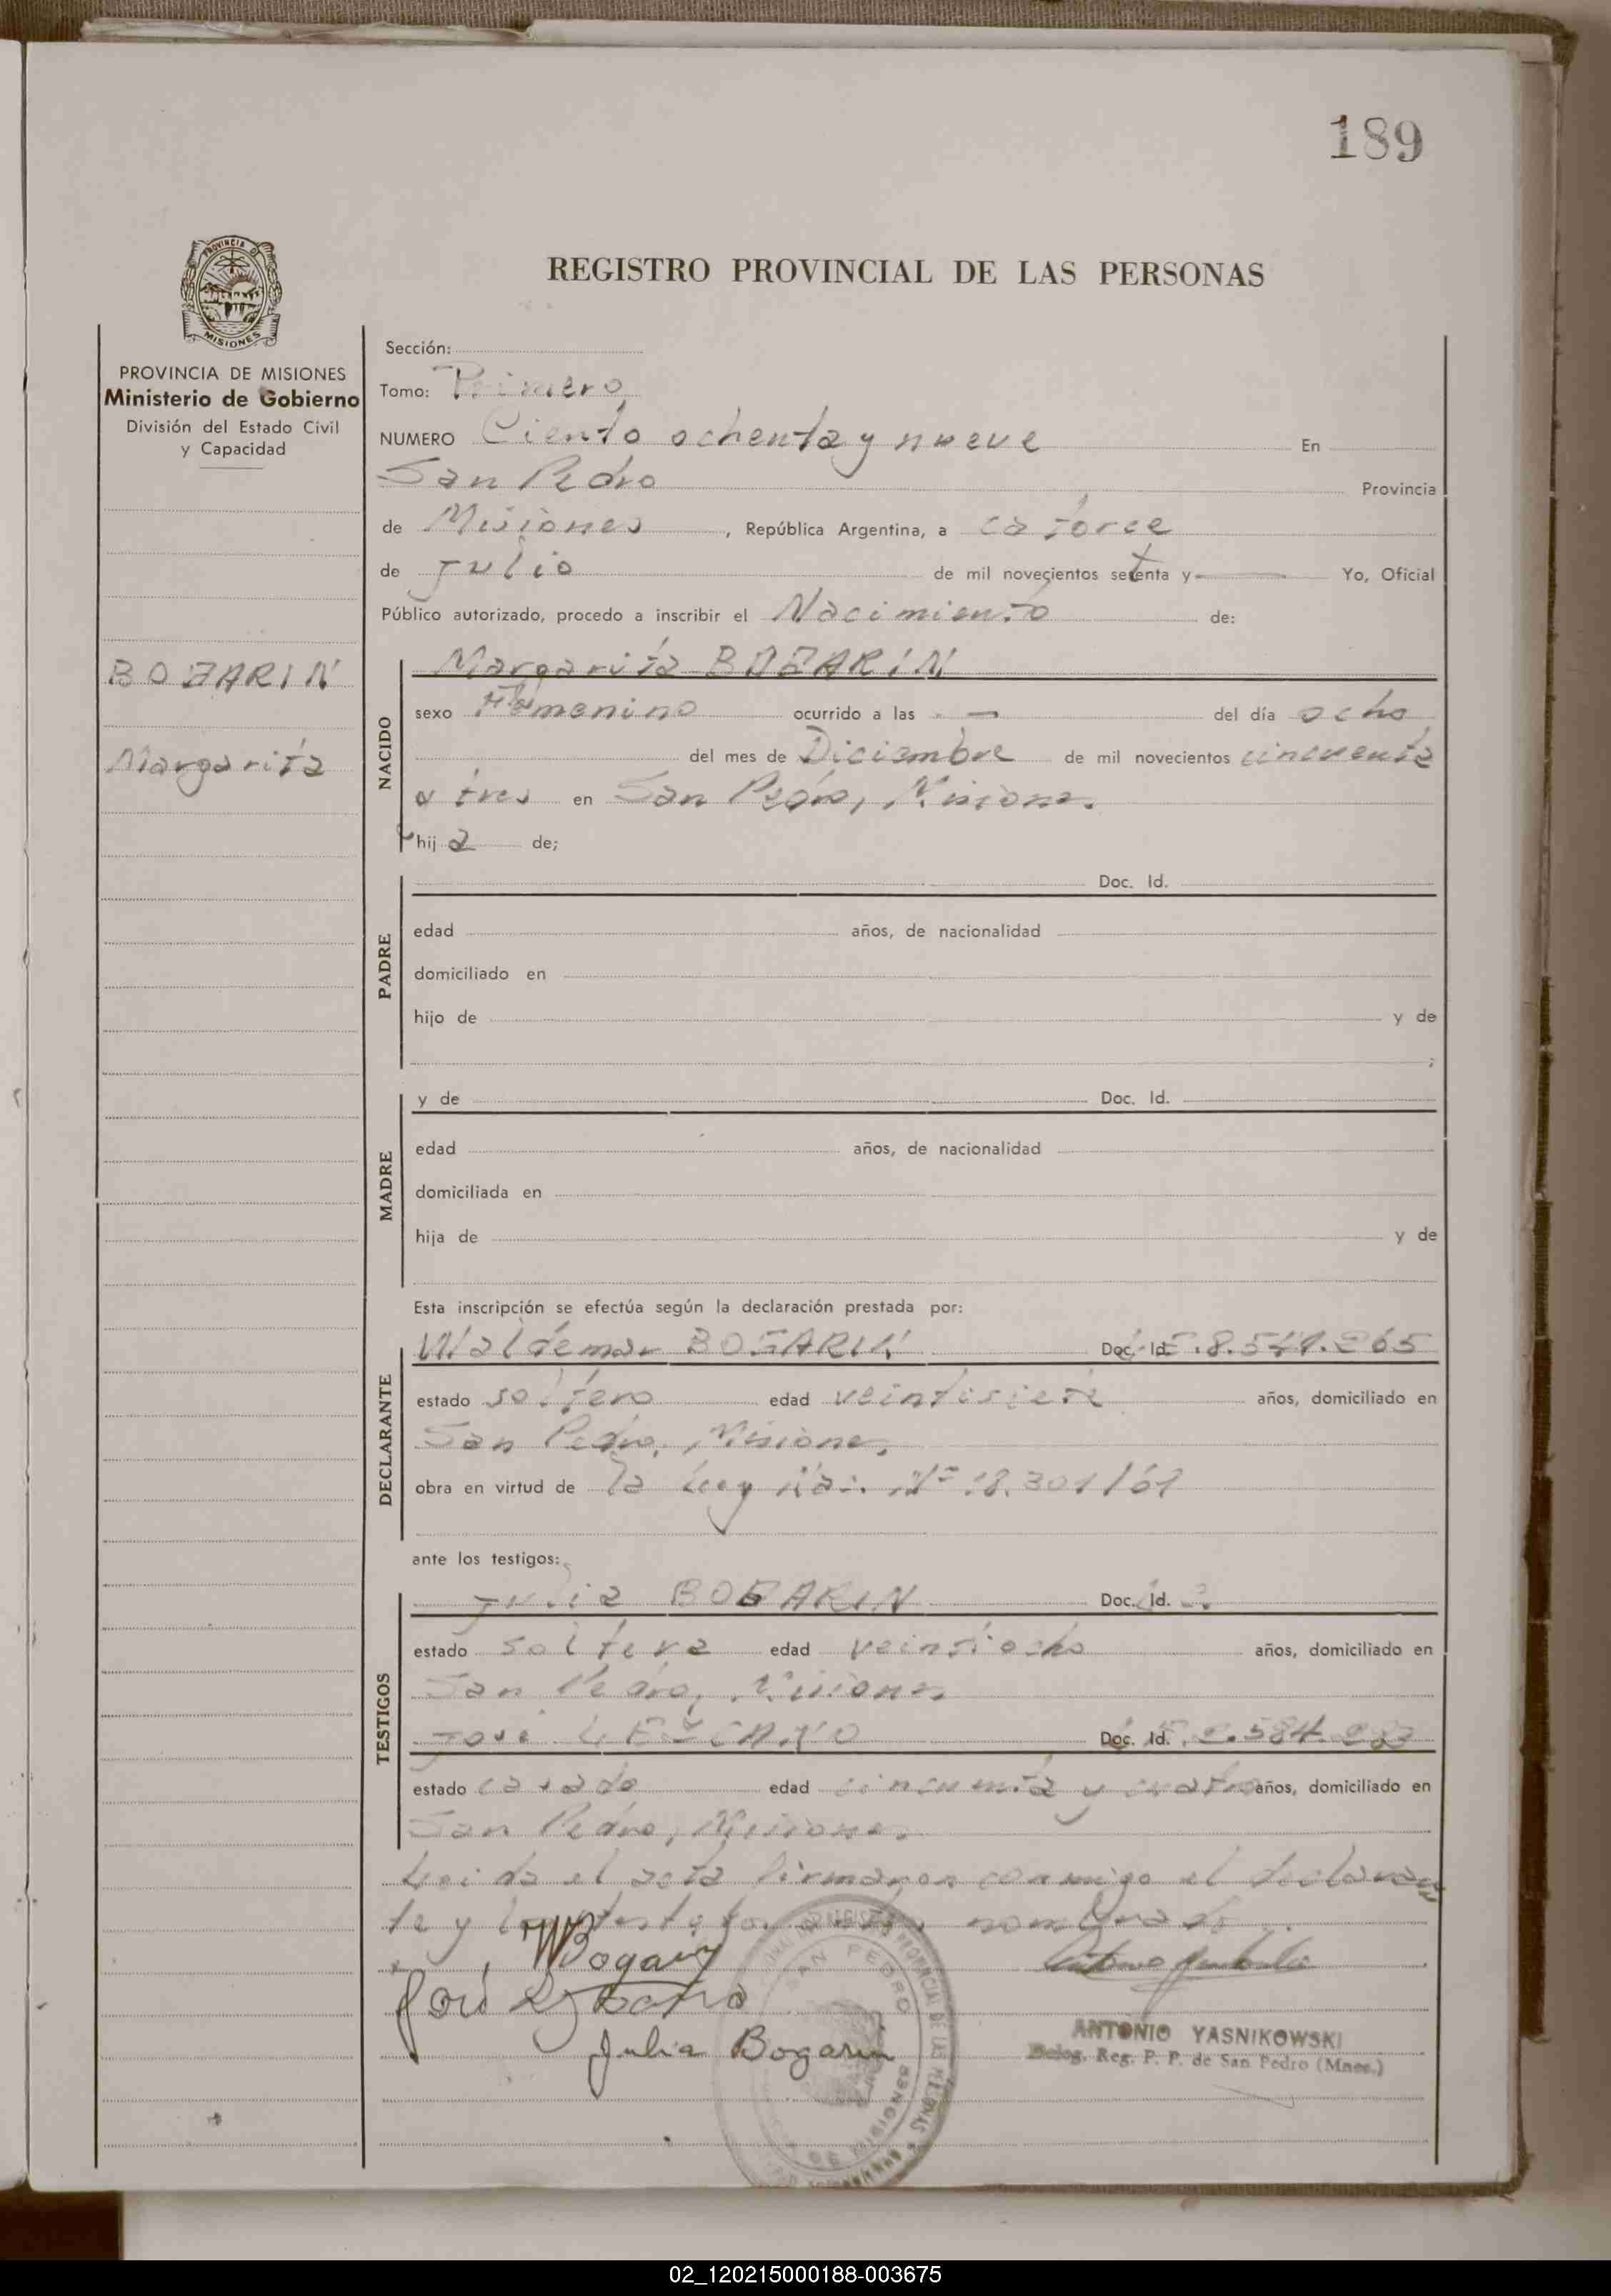 189
PROVINCIA DE
MISIONES
REGISTRO PROVINCIAL DE LAS PERSONAS
PROVINCIA DE MISIONES
Ministerio de Gobierno
División del Estado Civil
y Capacidad
BOGARIN
Margarita
Sección:
Tomo: Primero
NUMERO Ciento ochenta y nueve En
San Pedro Provincia
de Misiones, República Argentina, a catorce
de Julio de mil novecientos setenta y — Yo, Oficial
Público autorizado, procedo a inscribir el Nacimiento de:
NACIDO
Margarita BOGARIN
sexo Femenino ocurrido a las - — del día ocho
del mes de Diciembre de mil novecientos cincuenta
y tres en San Pedro, Misiones.
hija de;
PADRE
Doc. Id.
edad años, de nacionalidad
domiciliado en
hijo de y de
;
MADRE
y de Doc. Id.
edad años, de nacionalidad
domiciliada en
hija de y de
Esta inscripción se efectúa según la declaración prestada por:
DECLARANTE
Waldemar BOGARIN Doc. Id.
estado soltero edad veintisiete años, domiciliado en
San Pedro, Misiones,
obra en virtud de la Ley Nac. Nº 18.301/69
ante los testigos:
TESTIGOS
Julia BOGARIN Doc. Id.
estado soltera edad veintiocho años, domiciliado en
San Pedro, Misiones
José LEZCANO Doc. Id.
estado casado edad cincuenta y cuatro años, domiciliado en
San Pedro, Misiones.
Leida el acta firmaron conmigo el declaran
te y los testigos nombrados.
WBogarin
José Lezcano
Julia Bogarin
REGISTRO PROVINCIAL DE LAS PERSONAS
SAN PEDRO
MISIONES
ANTONIO YASNIKOWSKI
Deleg. Reg. P. P. de San Pedro (Mnes.)
02_120215000188-003675